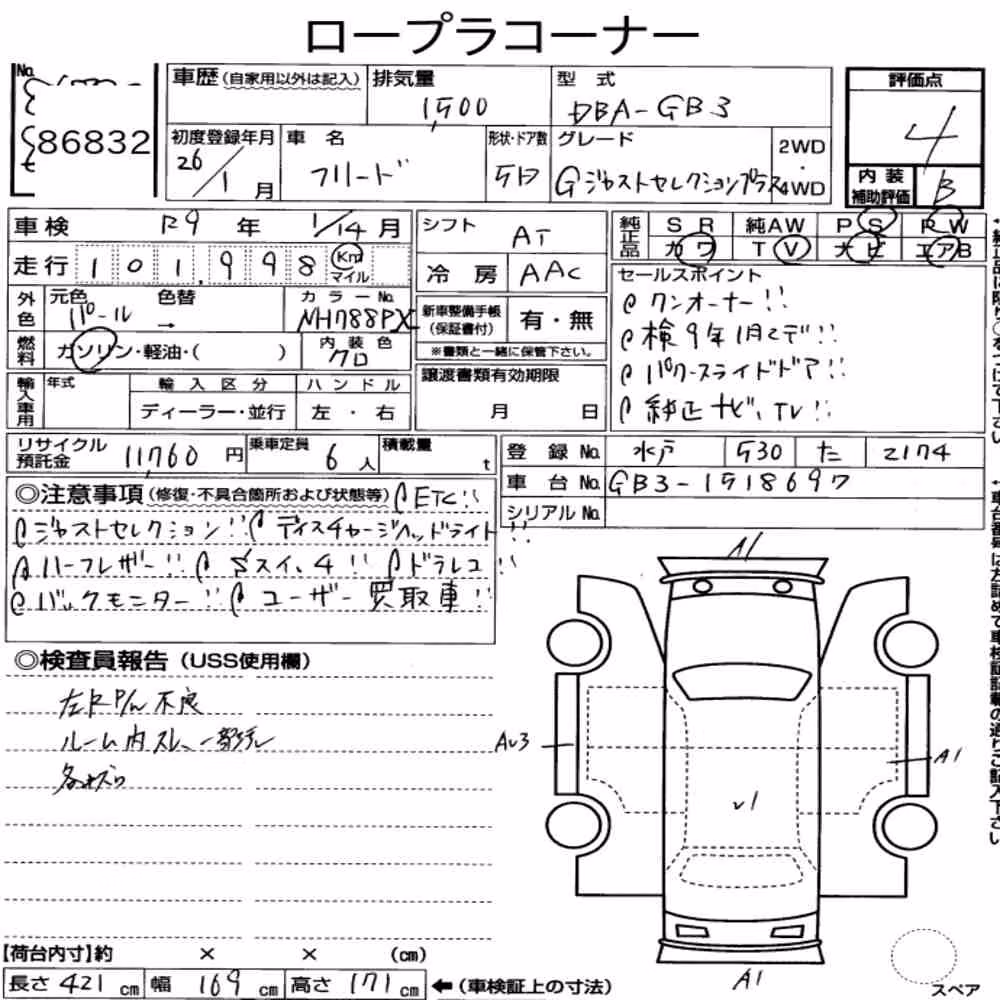 ロープラコーナー
No.
86832
車歴 (自家用以外は記入)
排気量
1500
型 式
DBA-GB3
評価点
4
初度登録年月
26/1 月
車 名
フリード
形状・ドア数
5D
グレード
Gジャストセレクションプラス
2WD
・
4WD
内 装
補助評価
B
車検 R9 年 1/14 月
走行 101,998 Km マイル
シフト
AT
冷 房 AAC
純正品
SR 純AW PS PW
カワ TV ナビ エアB
外色
元色 色替
パール →
カラーNo.
NH788PX
燃料
ガソリン・軽油・( )
内 装 色
クロ
新車整備手帳
(保証書付)
有・無
※書類と一緒に保管下さい。
セールスポイント
ワンオーナー!!
検9年1月まで!!
パワースライドドア!!
純正ナビ、TV!!
輸入車用
年式
輸 入 区 分
ディーラー・並行
ハ ン ド ル
左 ・ 右
譲渡書類有効期限
月 日
リサイクル
預託金
11,760 円
乗車定員
6 人
積載量
t
登 録 No. 水戸 530 た 2174
車 台 No. GB3-1518697
シリアルNo.
◎注意事項 (修復・不具合箇所および状態等) ETC!!
ジャストセレクション!! ディスチャージヘッドライト!!
ハーフレザー!! Sスイ、4!! ドラレコ!!
バックモニター!! ユーザー買取車!!
◎検査員報告 (USS使用欄)
左R P/w 不良
ルーム内スレ、一部汚レ
A1
v1
A1
スペア
【荷台内寸】約 × × (cm)
長さ 421 cm 幅 169 cm 高さ 171 cm ←(車検証上の寸法)